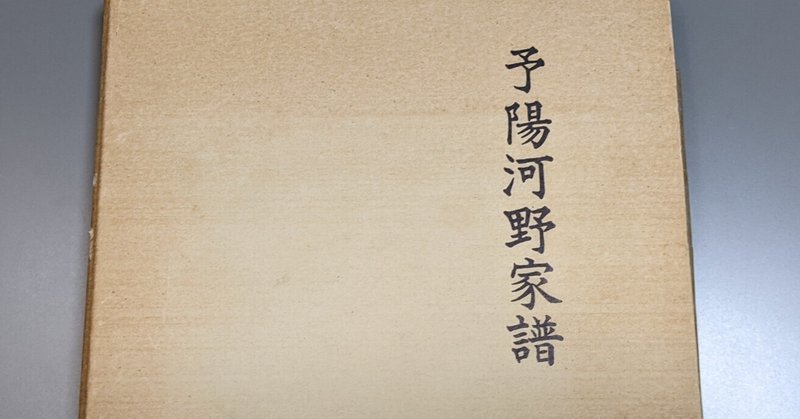 予陽河野家譜